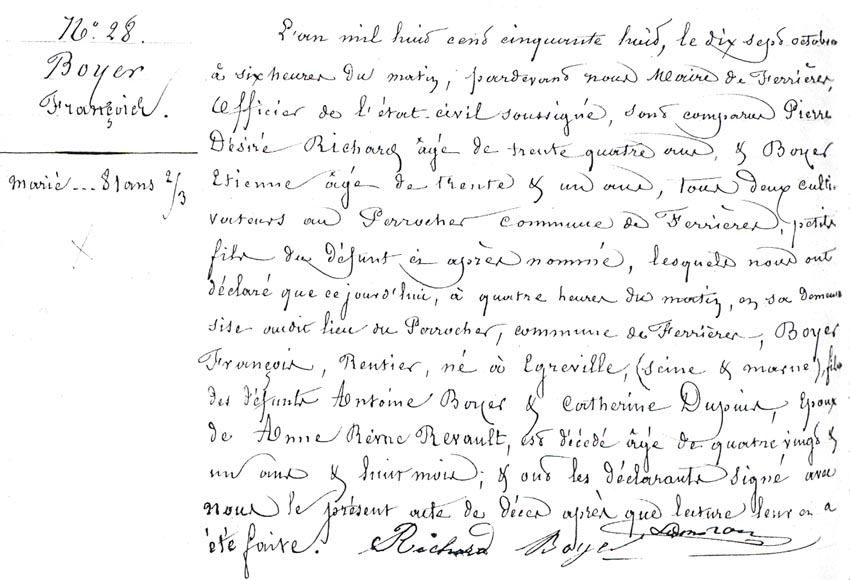 N° 28.
Boyer
François.
marié ... 81 ans 2/3
L'an mil huit cent cinquante huit, le dix sept octobre
à six heures du matin, pardevant nous Maire de Ferrières,
Officier de l'état-civil soussigné, sont comparus Pierre
Désiré Richard âgé de trente quatre ans, & Boyer
Etienne âgé de trente & un ans, tous deux culti-
vateurs au Perrocher commune de Ferrières, petits
fils du défunt ci après nommé, lesquels nous ont
déclaré que ce jourd'hui, à quatre heures du matin, en sa demeure
sise audit lieu du Perrocher, commune de Ferrières, Boyer
François, Rentier, né à Egreville, (seine & marne), fils
des défunts Antoine Boyer & Catherine Dupuis, Epoux
de Anne Revault, est décédé âgé de quatre vingt &
un ans & huit mois; & ont les déclarants signé avec
nous le présent acte de décès après que lecture leur en a
été faite. Richard Boyer